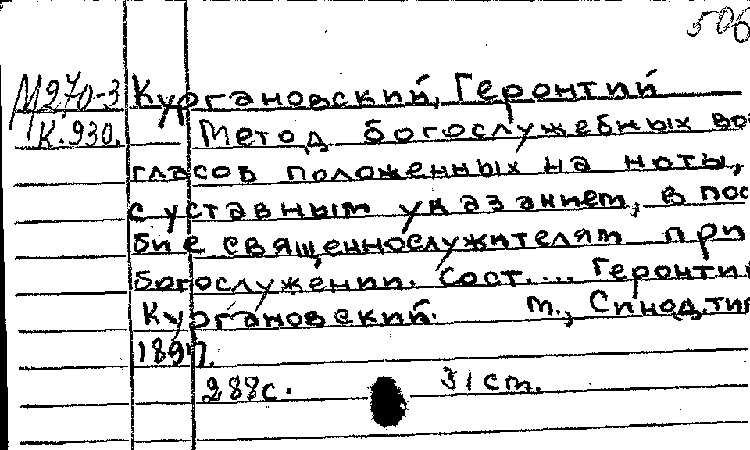 506
М270-3 Кургановский, Геронтий
К.930. Метод богослужебных воз
гласов положенных на ноты,
с уставным указанием, в посо
бие священнослужителям при
богослужении. Сост. ... Геронтий
Кургановский. М., Синод.тип
1897.
288с. 31см.